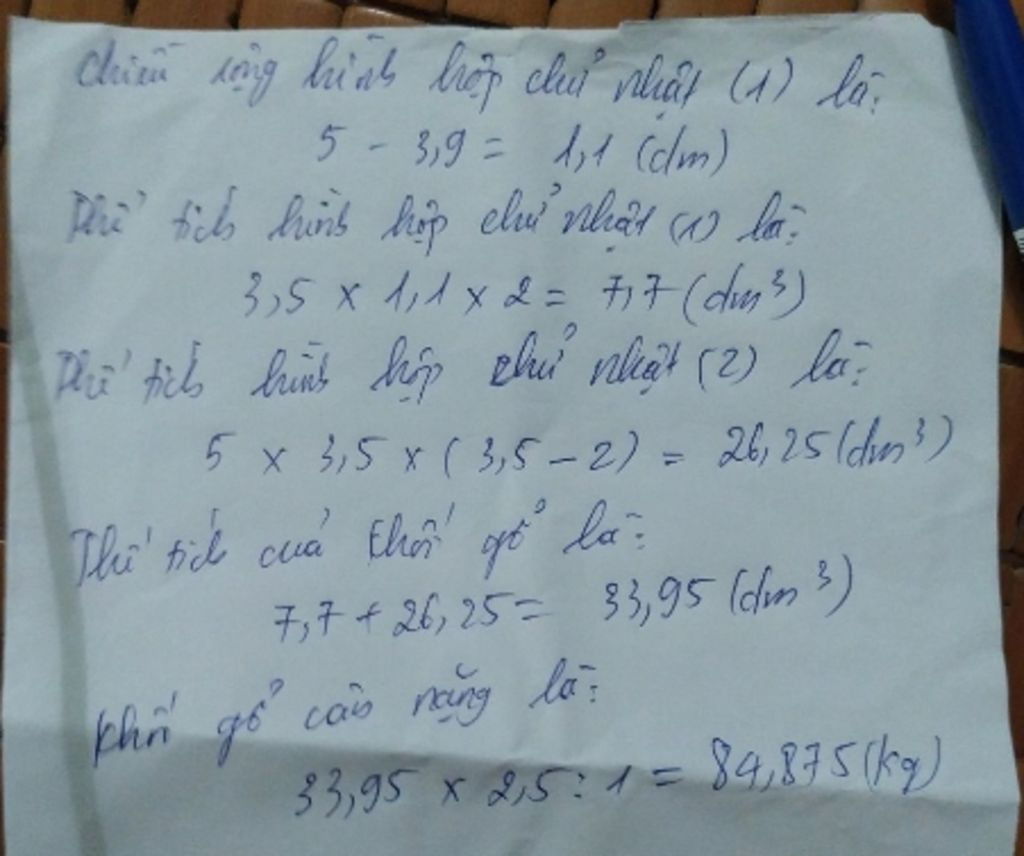 Chiều rộng hình hộp chữ nhật (1) là:
5 - 3,9 = 1,1 (dm)
Thể tích hình hộp chữ nhật (1) là:
3,5 x 1,1 x 2 = 7,7 (dm³)
Thể tích hình hộp chữ nhật (2) là:
5 x 3,5 x ( 3,5 - 2) = 26,25 (dm³)
Thể tích của khối gổ là:
7,7 + 26,25 = 33,95 (dm³)
Khối gổ cân nặng là:
33,95 x 2,5 : 1 = 84,875 (kg)